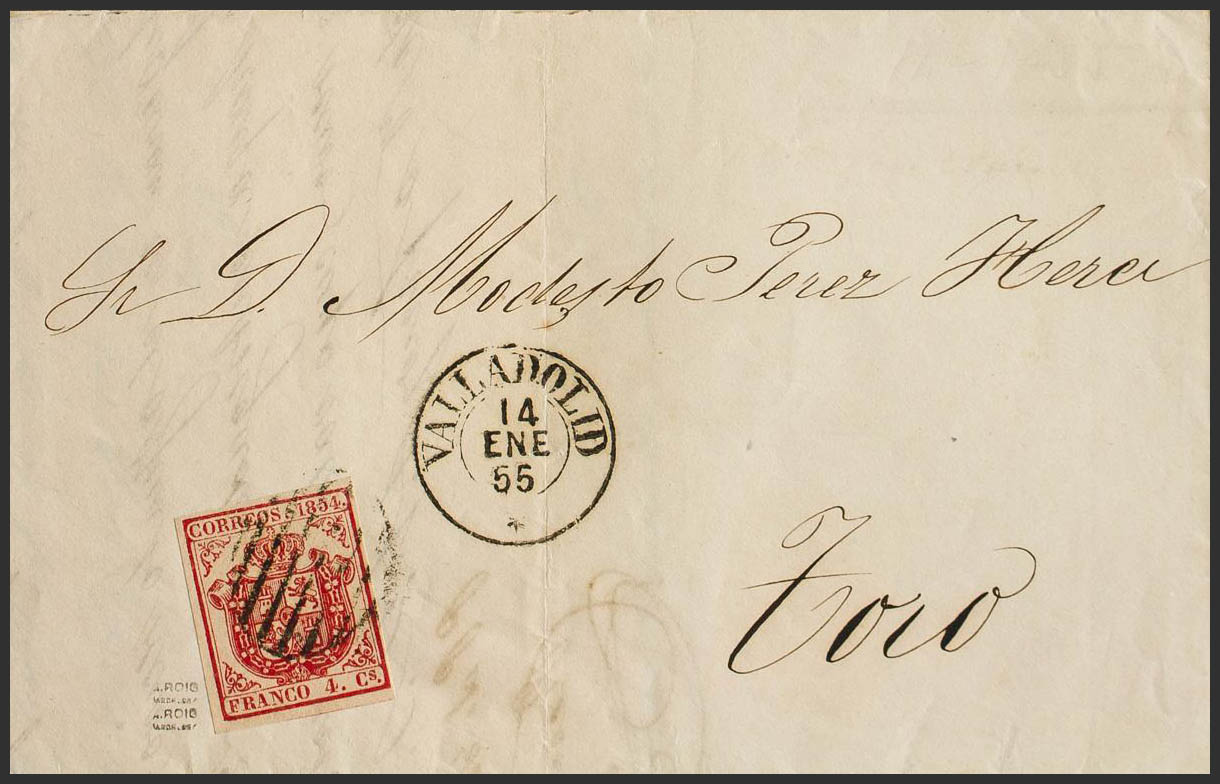 Sr D. Modesto Perez
VALLADOLID
14
ENE
55
CORREOS 1854.
FRANCO 4. Cs.
Toro
A.ROIG
A.ROIG